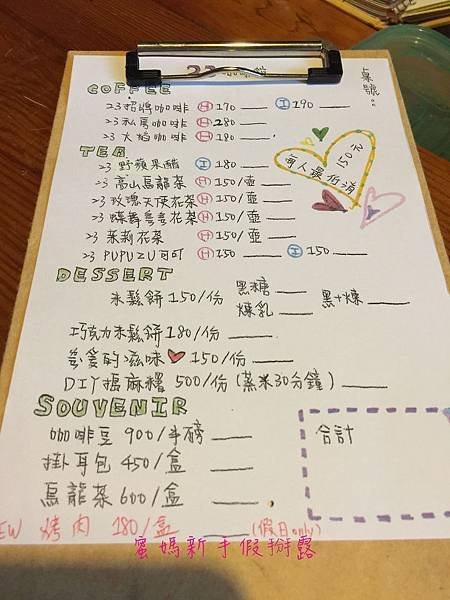 23 咖啡館
桌號:
COFFEE
23招牌咖啡 Ⓗ 170 ___ Ⓘ 190 ___
23私房咖啡 Ⓗ 280 ___
23大稻咖啡 Ⓗ 180 ___
每人最低消
150元
TEA
23 野蘋果醋 Ⓘ 180 ___
23 高山烏龍茶 Ⓗ 150/壺 ___
23 玫瑰天使花茶 Ⓗ 150/壺 ___
23 蝶舞雙雙花茶 Ⓗ 150/壺 ___
23 茉莉花茶 Ⓗ 150/壺 ___
23 PUPUZU可可 Ⓗ 150 ___ Ⓘ 150 ___
DESSERT
米鬆餅 150/份 黑糖 ___ 煉乳 ___ 黑+煉 ___
巧克力米鬆餅 180/份 ___
爸爸的滋味 ♥ 150/份 ___
DIY搗麻糬 500/份 (蒸米30分鐘) ___
SOUVENIR
咖啡豆 900/半磅 ___
掛耳包 450/盒 ___
烏龍茶 600/盒 ___
合計
EW 烤肉 180/盒 ___ (假日only)
蜜媽新手假掰露